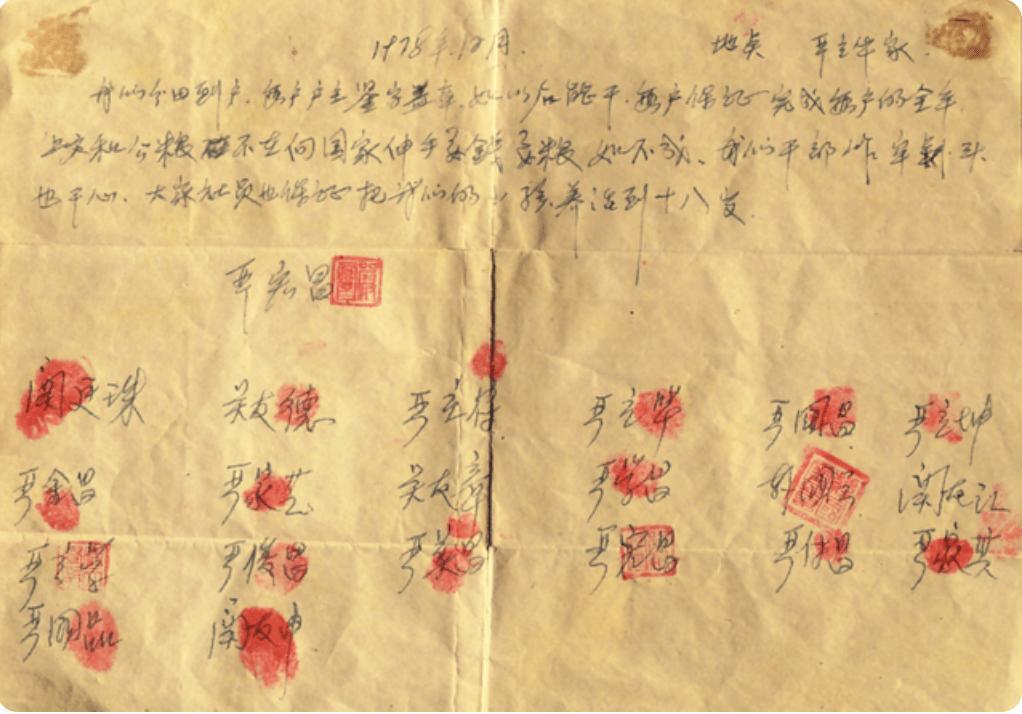 1978年12月. 地点 严立华家.
我们分田到户.每户户主签字盖章.如以后能干.每户保证完成每户的全年
上交和公粮 不在向国家伸手要钱要粮 如不成、我们干部作牢 头
也干心、大家社员也保证把我们的小孩养活到十八岁.
严宏昌
关廷珠 关友德 严立符 严立华 严国昌 严立坤
严金昌 严家芝 关友章 严学昌 韩国云 关友江
严立学 严俊昌 严美昌 严宏昌 严付昌 严家其
严国品 关友申